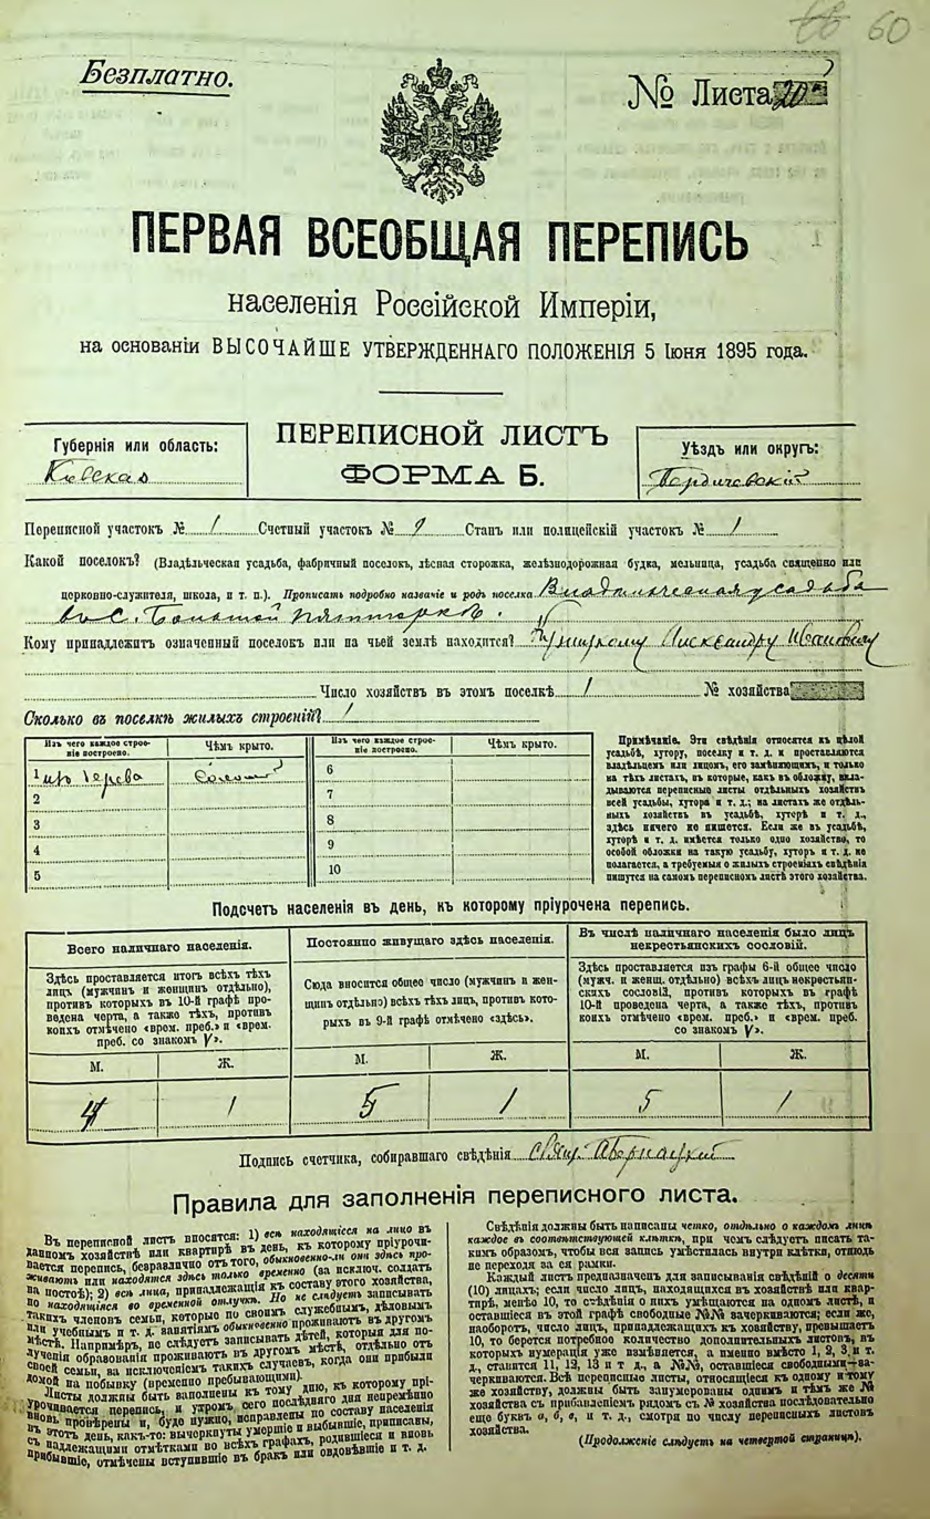 60
Безплатно.
№ Листа 20
ПЕРВАЯ ВСЕОБЩАЯ ПЕРЕПИСЬ
населенія Россійской Имперіи,
на основаніи ВЫСОЧАЙШЕ УТВЕРЖДЕННАГО ПОЛОЖЕНІЯ 5 Іюня 1895 года.
Губернія или область:
Кіевская
ПЕРЕПИСНОЙ ЛИСТЪ
ФОРМА Б.
Уѣздъ или округъ:
Бердичевскій
Переписной участокъ № 1 Счетный участокъ № 9 Станъ или полицейскій участокъ № 1
Какой поселокъ? (Владѣльческая усадьба, фабричный поселокъ, лѣсная сторожка, желѣзнодорожная будка, мельница, усадьба священно или
церковно-служителя, школа, и т. п.). Прописать подробно названіе и родъ поселка Владѣльческая усадьба
въ с. Большой
Кому принадлежитъ означенный поселокъ или на чьей землѣ находится? Александру Ивановичу
Число хозяйствъ въ этомъ поселкѣ 1 № хозяйства
Сколько въ поселкѣ жилыхъ строеній? 1
Изъ чего каждое строе-
ніе построено.
Чѣмъ крыто.
Изъ чего каждое строе-
ніе построено.
Чѣмъ крыто.
1 изъ дерева
соломой
2
3
4
5
6
7
8
9
10
Примѣчаніе. Эти свѣдѣнія относятся къ цѣлой
усадьбѣ, хутору, поселку и т. д. и проставляются
владѣльцемъ или лицомъ, его замѣняющимъ, и только
на тѣхъ листахъ, въ которые, какъ въ обложку, вкла-
дываются переписные листы отдѣльныхъ хозяйствъ
всей усадьбы, хутора и т. д.; на листахъ же отдѣль-
ныхъ хозяйствъ въ усадьбѣ, хуторѣ и т. д.,
здѣсь ничего не пишется. Если же въ усадьбѣ,
хуторѣ и т. д. имѣется только одно хозяйство, то
особой обложки на такую усадьбу, хуторъ и т. д. не
полагается, а требуемыя о жилыхъ строеніяхъ свѣдѣнія
пишутся на самомъ переписномъ листѣ этого хозяйства.
Подсчетъ населенія въ день, къ которому пріурочена перепись.
Всего наличнаго населенія.
Здѣсь проставляется итогъ всѣхъ тѣхъ
лицъ (мужчинъ и женщинъ отдѣльно),
противъ которыхъ въ 10-й графѣ про-
ведена черта, а также тѣхъ, противъ
коихъ отмѣчено «врем. преб.» и «врем.
преб. со знакомъ V».
Постоянно живущаго здѣсь населенія.
Сюда вносится общее число (мужчинъ и жен-
щинъ отдѣльно) всѣхъ тѣхъ лицъ, противъ кото-
рыхъ въ 9-й графѣ отмѣчено «здѣсь».
Въ числѣ наличнаго населенія было лицъ
некрестьянскихъ сословій.
Здѣсь проставляется изъ графы 6-й общее число
(мужч. и женщ. отдѣльно) всѣхъ лицъ некрестьян-
скихъ сословій, противъ которыхъ въ графѣ
10-й проведена черта, а также тѣхъ, противъ
коихъ отмѣчено «врем. преб.» и «врем. преб.
со знакомъ V».
М. Ж. М. Ж. М. Ж.
4 1 5 1 5 1
Подпись счетчика, собиравшаго свѣдѣнія Свящ.
Правила для заполненія переписного листа.
Въ переписной листъ вносятся: 1) всѣ находящіеся на лицо въ
данномъ хозяйствѣ или квартирѣ въ день, къ которому пріурочи-
вается перепись, безразлично отъ того, обыкновенно-ли они здѣсь про-
живаютъ или находятся здѣсь только временно (за исключ. солдатъ
на постоѣ); 2) всѣ лица, принадлежащія къ составу этого хозяйства,
но находящіяся во временной отлучкѣ. Но не слѣдуетъ записывать
такихъ членовъ семьи, которые по своимъ служебнымъ, дѣловымъ
или учебнымъ и т. д. занятіямъ обыкновенно проживаютъ въ другомъ
мѣстѣ. Напримѣръ, не слѣдуетъ записывать дѣтей, которыя для по-
лученія образованія проживаютъ въ другомъ мѣстѣ, отдѣльно отъ
своей семьи, за исключеніемъ такихъ случаевъ, когда они прибыли
домой на побывку (временно пребывающими).
Листы должны быть заполнены къ тому дню, къ которому прі-
урочивается перепись, и утромъ сего послѣдняго дня непремѣнно
вновь провѣрены и, буде нужно, исправлены по составу населенія
въ этотъ день, какъ-то: вычеркнуты умершіе и выбывшіе, приписаны,
съ надлежащими отмѣтками во всѣхъ графахъ, родившіеся и вновь
прибывшіе, отмѣчены вступившіе въ бракъ или овдовѣвшіе и т. д.
Свѣдѣнія должны быть написаны четко, отдѣльно о каждомъ лицѣ
каждое въ соотвѣтствующей клѣткѣ, при чемъ слѣдуетъ писать та-
кимъ образомъ, чтобы вся запись умѣстилась внутри клѣтки, отнюдь
не переходя за ея рамки.
Каждый листъ предназначенъ для записыванія свѣдѣній о десяти
(10) лицахъ; если число лицъ, находящихся въ хозяйствѣ или квар-
тирѣ, менѣе 10, то свѣдѣнія о нихъ умѣщаются на одномъ листѣ, и
оставшіеся въ этой графѣ свободные №№ зачеркиваются; если же,
наоборотъ, число лицъ, принадлежащихъ къ хозяйству, превышаетъ
10, то берется потребное количество дополнительныхъ листовъ, въ
которыхъ нумерація уже измѣняется, а именно вмѣсто 1, 2, 3, и т.
д., ставится 11, 12, 13 и т. д., а №№, оставшіеся свободными—за-
черкиваются. Всѣ переписные листы, относящіеся къ одному и тому
же хозяйству, должны быть занумерованы однимъ и тѣмъ же №
хозяйства съ прибавленіемъ рядомъ съ № хозяйства послѣдовательно
еще буквъ а, б, в, и т. д., смотря по числу переписныхъ листовъ
хозяйства.
(Продолженіе слѣдуетъ на четвертой страницѣ).